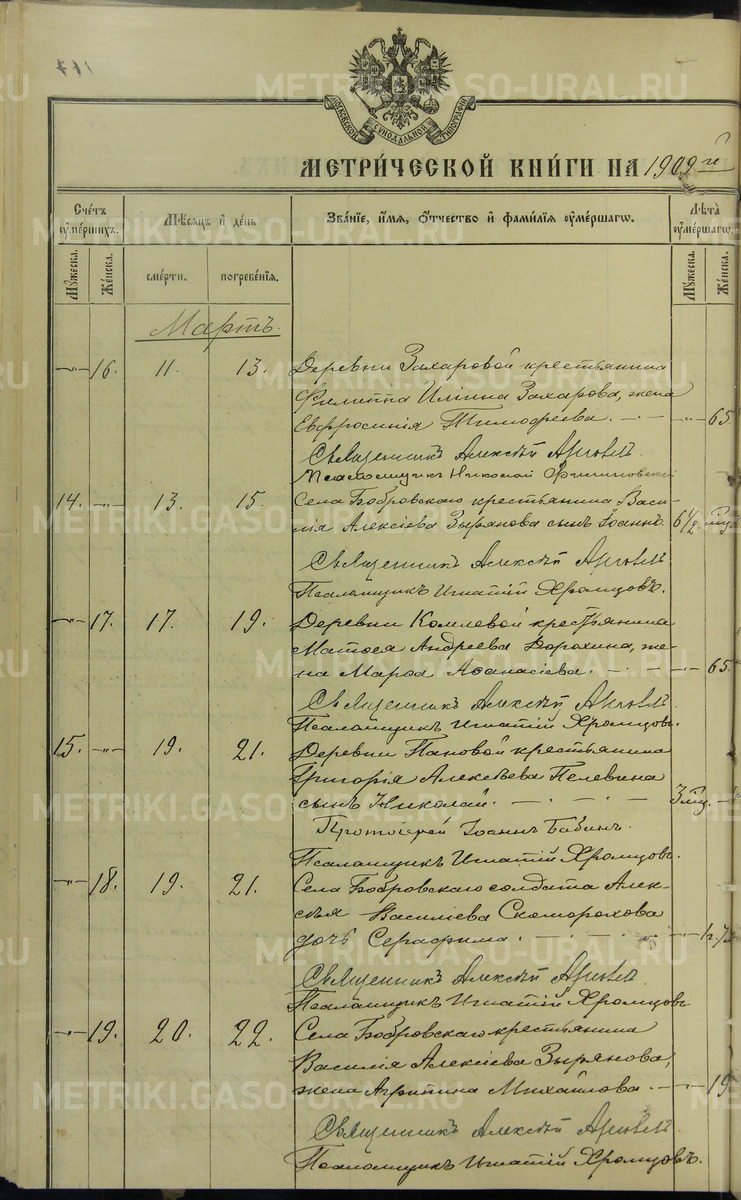 МОСКОВСКОЙ СѴНОДАЛЬНОЙ ТИПОГРАФІИ
МЕТРИ́ЧЕСКОЙ КНИ́ГИ НА 1909 г
Счетъ ѹмершихъ.
Мѣсяцъ и день
Званіе, имя, отчество и фамилія ѹмершагѡ.
Лѣта ѹмершагѡ.
Мужеска.
Женска.
смерти.
погребенія.
Мужеска.
Женска.
Мартъ.
–"– 16. 11. 13. Деревни Захаровой крестьянина
Филиппа Ильина Захарова, жена
Евфросинія Тимофеева. –"– 65
Священникъ Алексѣй
Псаломщикъ Николай
14. –"– 13. 15. Села Бобровскаго крестьянина Васи-
лія Алексіева Зырянова сынъ Іоаннъ. 6 1/2
Священникъ Алексѣй
Псаломщикъ Игнатій Хромцовъ.
–"– 17. 17. 19. Деревни Комлевой крестьянина
Матѳея Андреева Дорохина, же-
на Марѳа Аѳанасіева. –"– 65
Священникъ Алексѣй
Псаломщикъ Игнатій Хромцовъ.
15. –"– 19. 21. Деревни Пановой крестьянина
Григорія Алексѣева Пелевина
сынъ Николай. 3 мц.
Протоіерей Іоаннъ Бабинъ.
Псаломщикъ Игнатій Хромцовъ.
–"– 18. 19. 21. Села Бобровскаго солдата Алек-
сѣя Василіева Скоморохова
дочь Серафима. –"–
Священникъ Алексѣй
Псаломщикъ Игнатій Хромцовъ
–"– 19. 20. 22. Села Бобровскаго крестьянина
Василія Алексіева Зырянова,
жена Агрипина Михайлова. –"– 19
Священникъ Алексѣй
Псаломщикъ Игнатій Хромцовъ.
METRIKI.GASO-URAL.RU